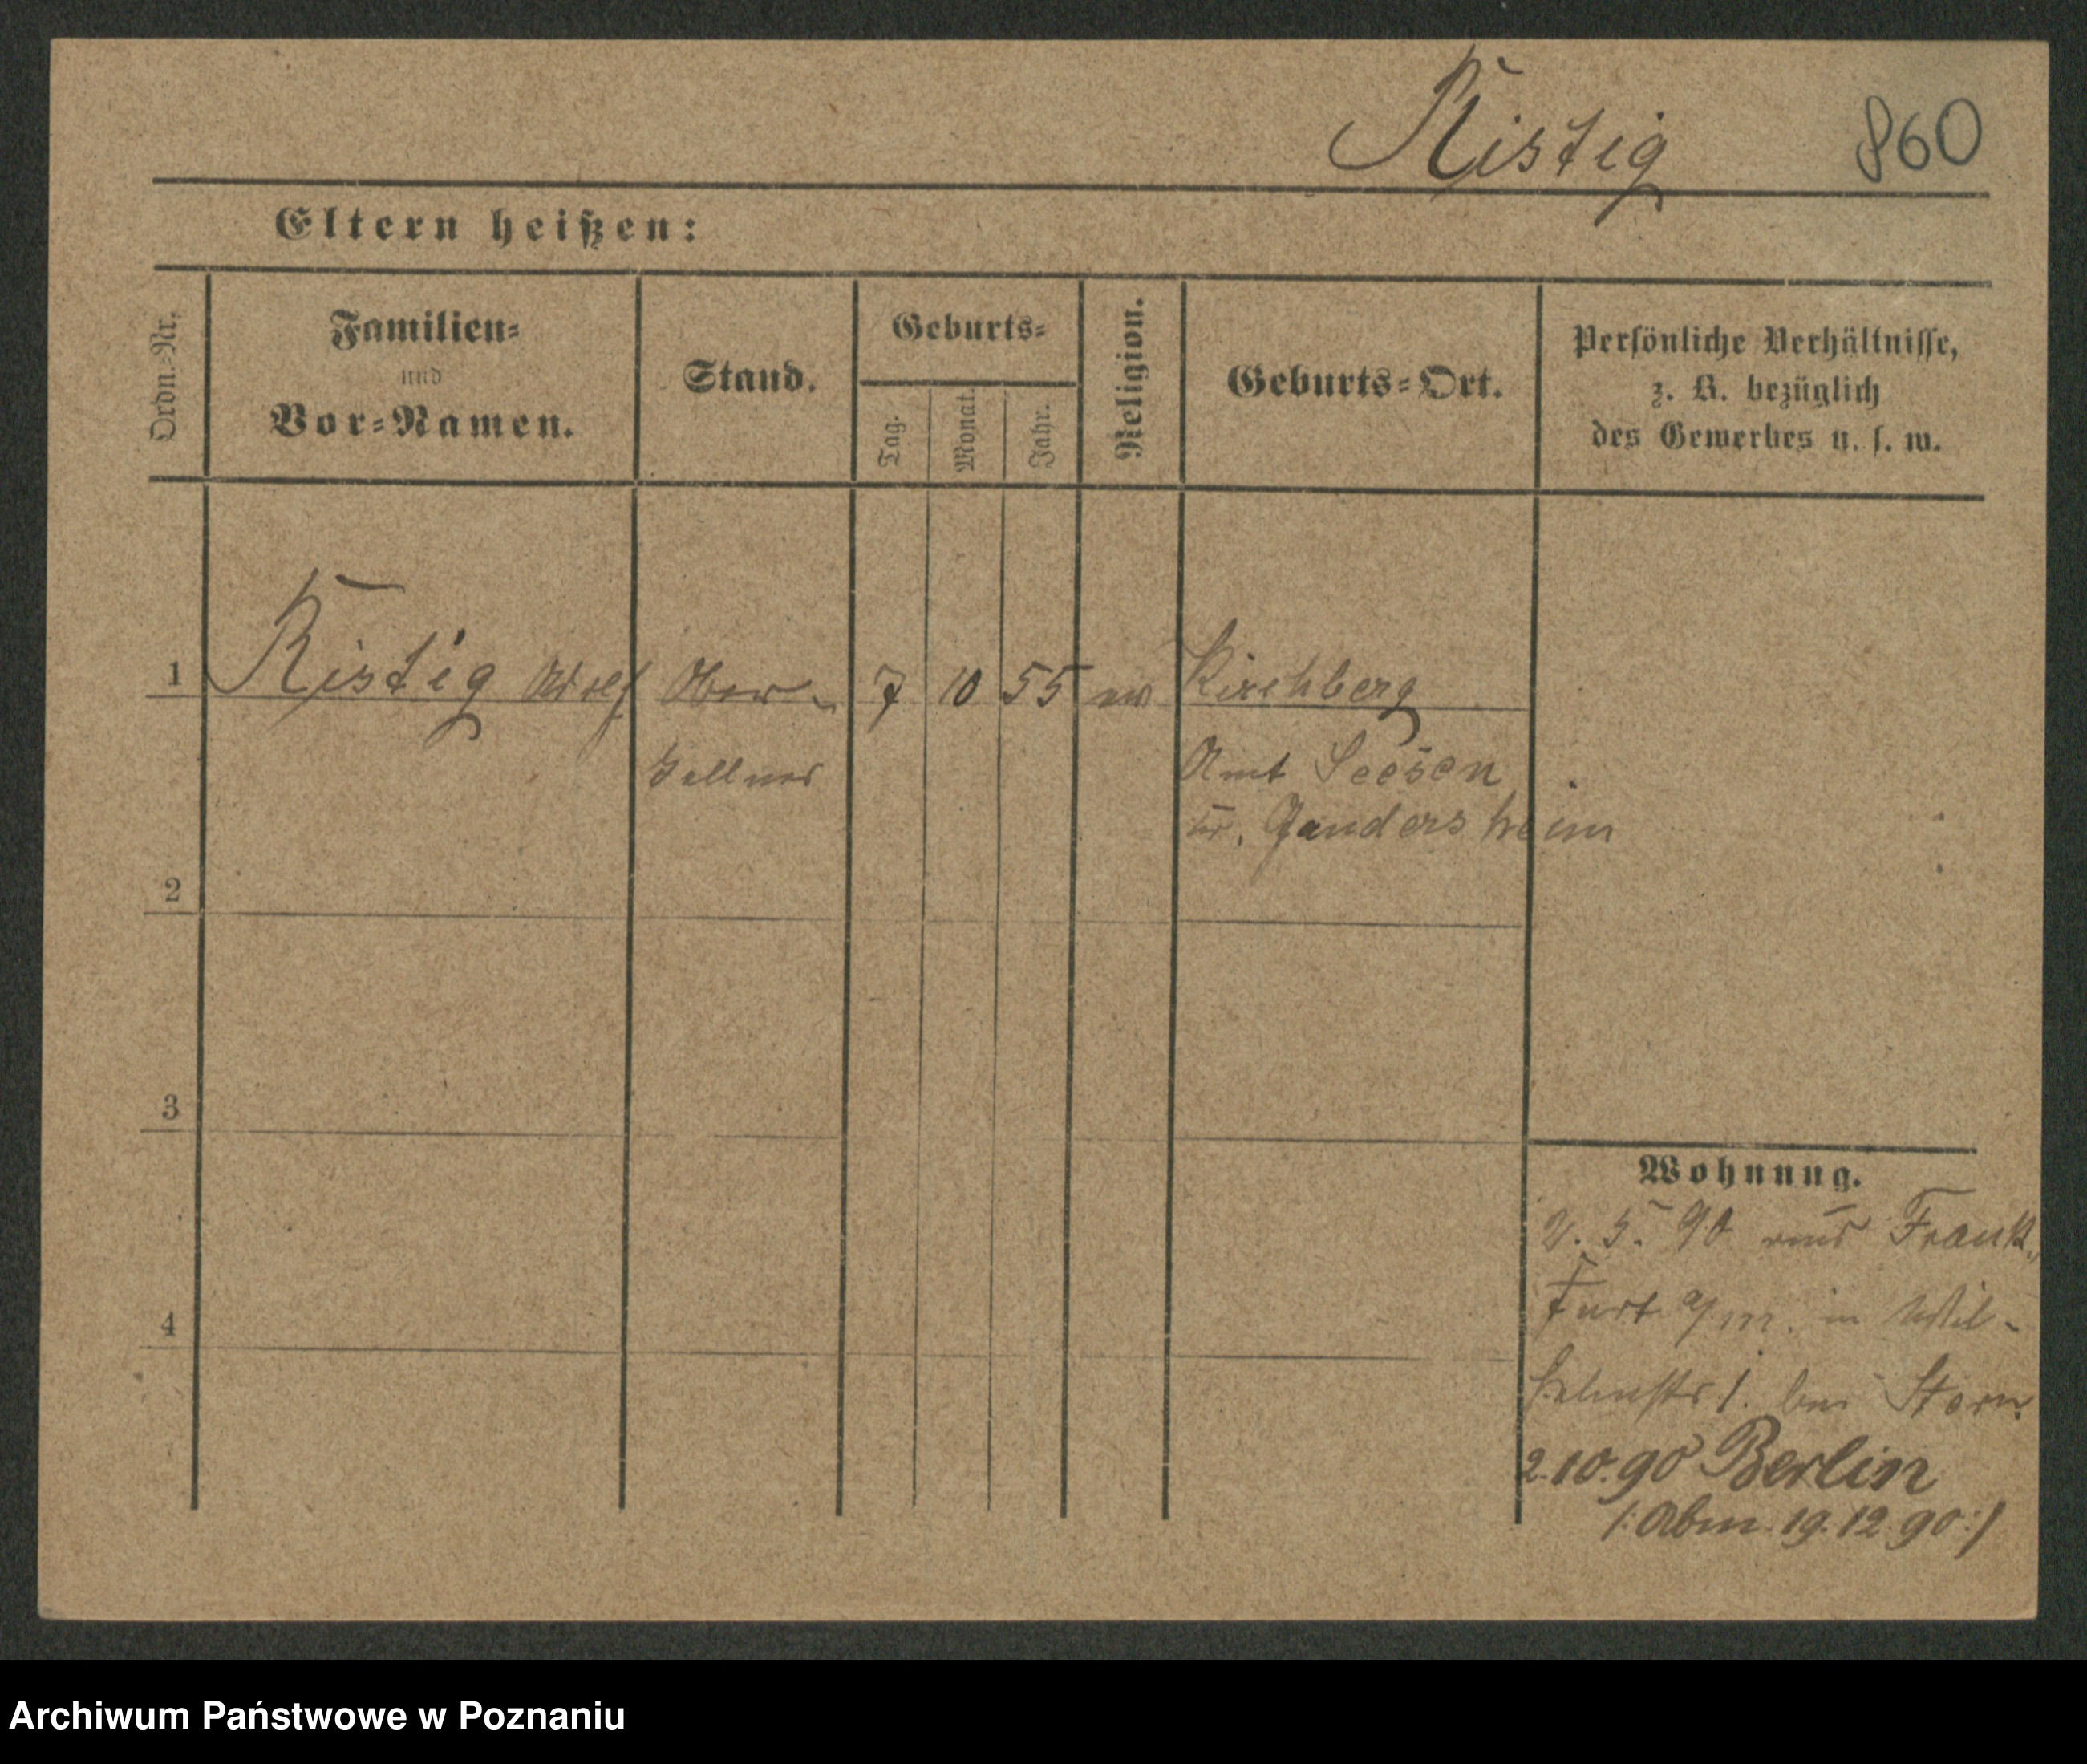 Ristig 860
Eltern heißen:
Ordn.-Nr.
Familien-
und
Vor-Namen.
Stand.
Geburts-
Tag.
Monat.
Jahr.
Religion.
Geburts-Ort.
Persönliche Verhältnisse,
z. B. bezüglich
des Gewerbes u. s. w.
1 Ristig Adolf Ober- 7 10 55 ev Kirchberg
kellner Amt Seesen
Kr. Gandersheim
2
3
4
Wohnung.
5. 90 aus Frank-
furt a/m. in Wil-
helmstr 1. bei Stern
2.10.90 Berlin
/: Abm. 19.12.90 :/
Archiwum Państwowe w Poznaniu